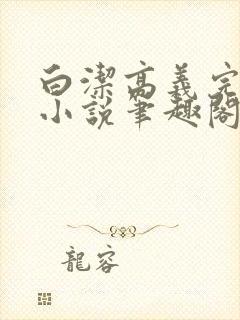 白潔高義完
小説筆趣閣
龍容